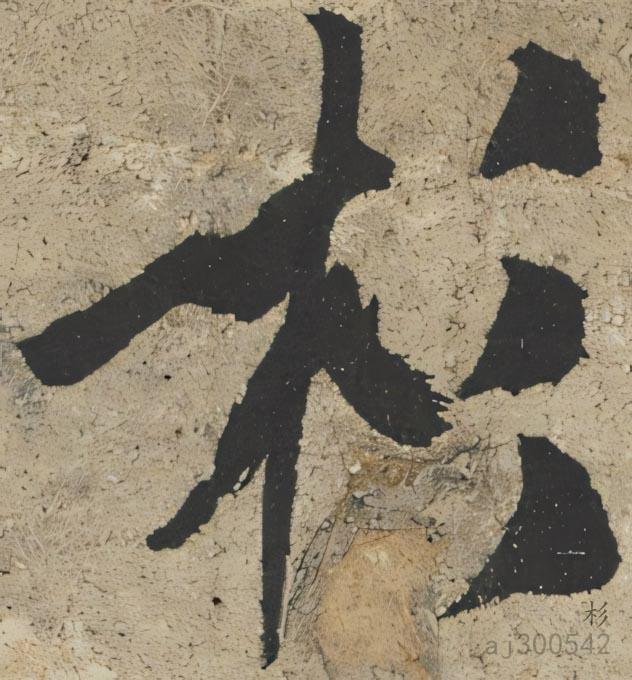 杉
杉
aj300542